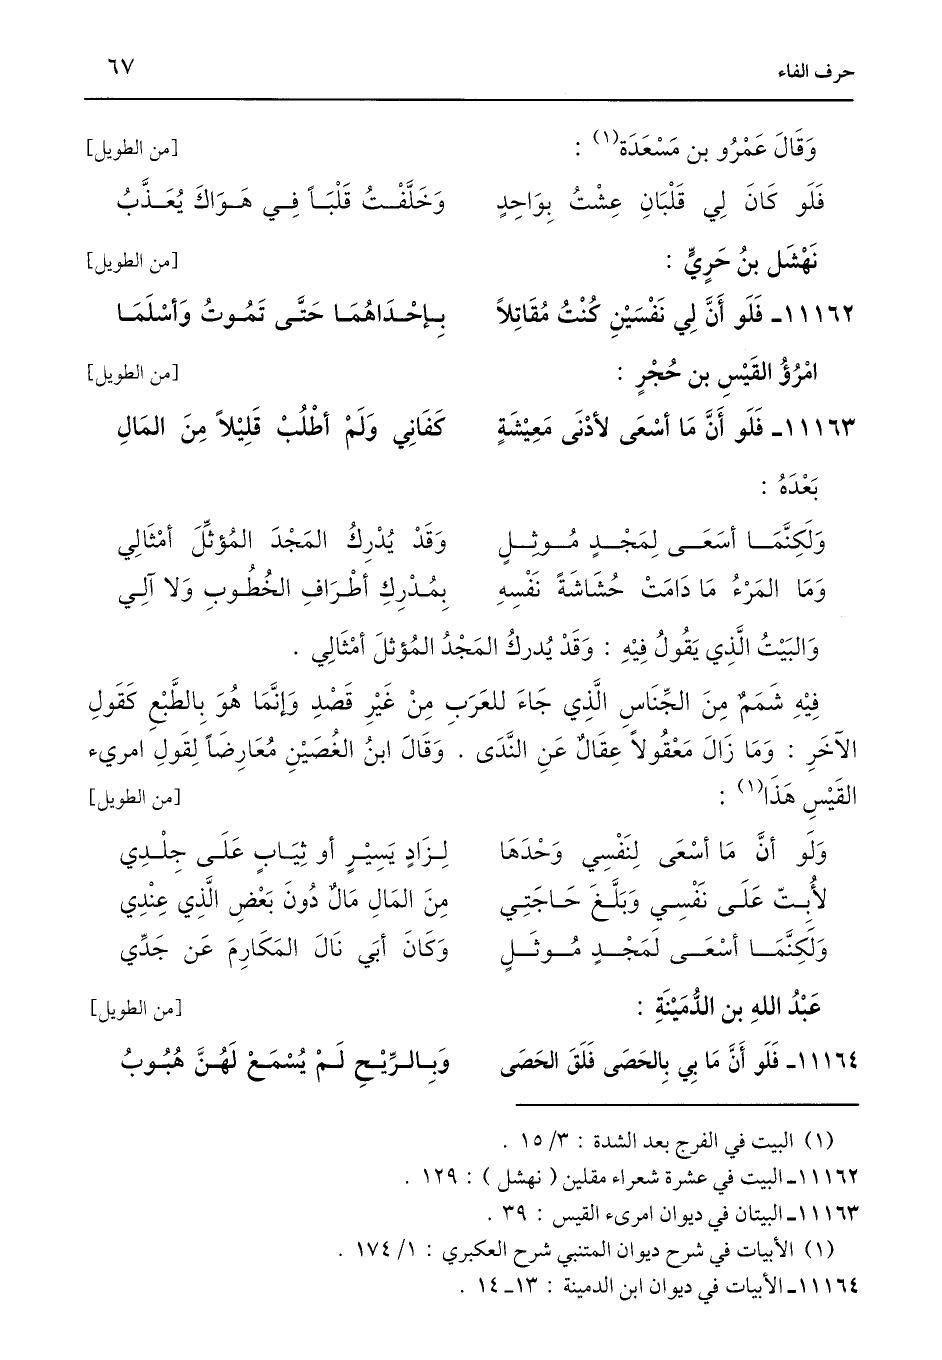 حرف الفاء ٦٧
وَقَالَ عَمْرُو بن مَسْعَدَة(١) : [من الطويل]
فَلَو كَانَ لِي قَلْبَانِ عِشْتُ بِوَاحِدٍ وَخَلَّفْتُ قَلْبَاً فِي هَوَاكَ يُعَذَّبُ
نَهْشَل بنُ حَرِيٍّ : [من الطويل]
١١١٦٢ـ فَلَو أَنَّ لِي نَفْسَيْنِ كُنْتُ مُقَاتِلاً بِإِحْدَاهُمَا حَتَّى تَمُوتُ وَأَسْلَمَا
امْرُؤُ القَيْسِ بن حُجْرٍ : [من الطويل]
١١١٦٣ـ فَلَو أَنَّ مَا أَسْعَى لأَدْنَى مَعِيْشَةٍ كَفَانِي وَلَمْ أَطْلُبْ قَلِيْلاً مِنَ المَالِ
بَعْدَهُ :
وَلَكِنَّمَا أَسَعَى لِمَجْدٍ مُوثِلٍ وَقَدْ يُدْرِكُ المَجْدَ المُؤثِّلَ أَمْثَالِي
وَمَا المَرْءُ مَا دَامَتْ حُشَاشَةً نَفْسِهِ بِمُدْرِكِ أَطْرَافِ الخُطُوبِ وَلا آلِي
وَالبَيْتُ الَّذِي يَقُولُ فِيْهِ : وَقَدْ يُدركُ المَجْدُ المُؤثلَ أَمْثَالِي .
فِيْهِ شَمَمٌ مِنَ الجِّنَاسِ الَّذِي جَاءَ للعَرَبِ مِنْ غَيْرِ قَصْدٍ وَإِنَّمَا هُوَ بِالطَّبْعِ كَقَولِ
الآخَرِ : وَمَا زَالَ مَعْقُولاً عِقَالٌ عَنِ النَّدَى . وَقَالَ ابنُ الغُصَيْنِ مُعَارِضَاً لِقَولِ امرِيء
القَيْسِ هَذَا(١) : [من الطويل]
وَلَو أنَّ مَا أَسْعَى لِنَفْسِي وَحْدَهَا لِزَادٍ يَسِيْرٍ أو ثِيَابٍ عَلَى جِلْدِي
لأُبِتّ عَلَى نَفْسِي وَبَلَّغَ حَاجَتِي مِنَ المَالِ مَالٌ دُونَ بَعْضِ الَّذِي عِنْدِي
وَلَكِنَّمَا أَسْعَى لَمَجْدٍ مُوثَلٍ وَكَانَ أَبِي نَالَ المَكَارِمَ عَن جَدِّي
عَبْدُ الله بن الدُّمَيْنَةِ : [من الطويل]
١١١٦٤ـ فَلَو أَنَّ مَا بِي بِالحَصَى فَلَقَ الحَصَى وَبِالرِّيْحِ لَمْ يُسْمَعْ لَهُنَّ هُبُوبُ
(١) البيت في الفرج بعد الشدة : ٣/ ١٥ .
١١١٦٢ـ البيت في عشرة شعراء مقلين ( نهشل ) : ١٢٩ .
١١١٦٣ـ البيتان في ديوان امرىء القيس : ٣٩ .
(١) الأبيات في شرح ديوان المتنبي شرح العكبري : ١/ ١٧٤ .
١١١٦٤ـ الأبيات في ديوان ابن الدمينة : ١٣ـ ١٤ .